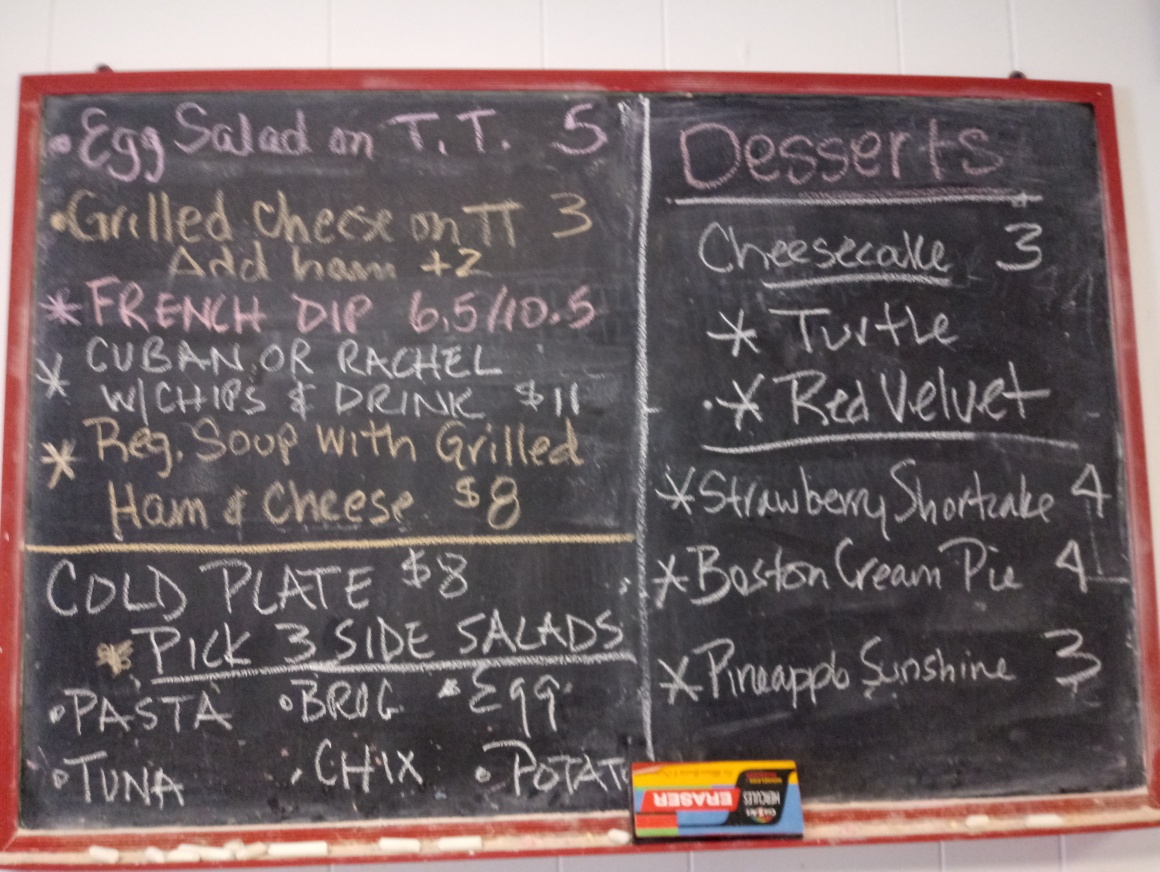 • Egg Salad on T.T. 5
• Grilled Cheese on TT 3
Add ham +2
* FRENCH DIP 6.5/10.5
* CUBAN OR RACHEL
W/CHIPS & DRINK $11
* Reg. Soup with Grilled
Ham & Cheese $8
COLD PLATE $8
* PICK 3 SIDE SALADS
• PASTA • BROC. • Egg
• TUNA • CHIX • POTAT
Desserts
Cheesecake 3
* Turtle
* Red Velvet
* Strawberry Shortcake 4
* Boston Cream Pie 4
* Pineapple Sunshine 3
HERCULES
ERASER